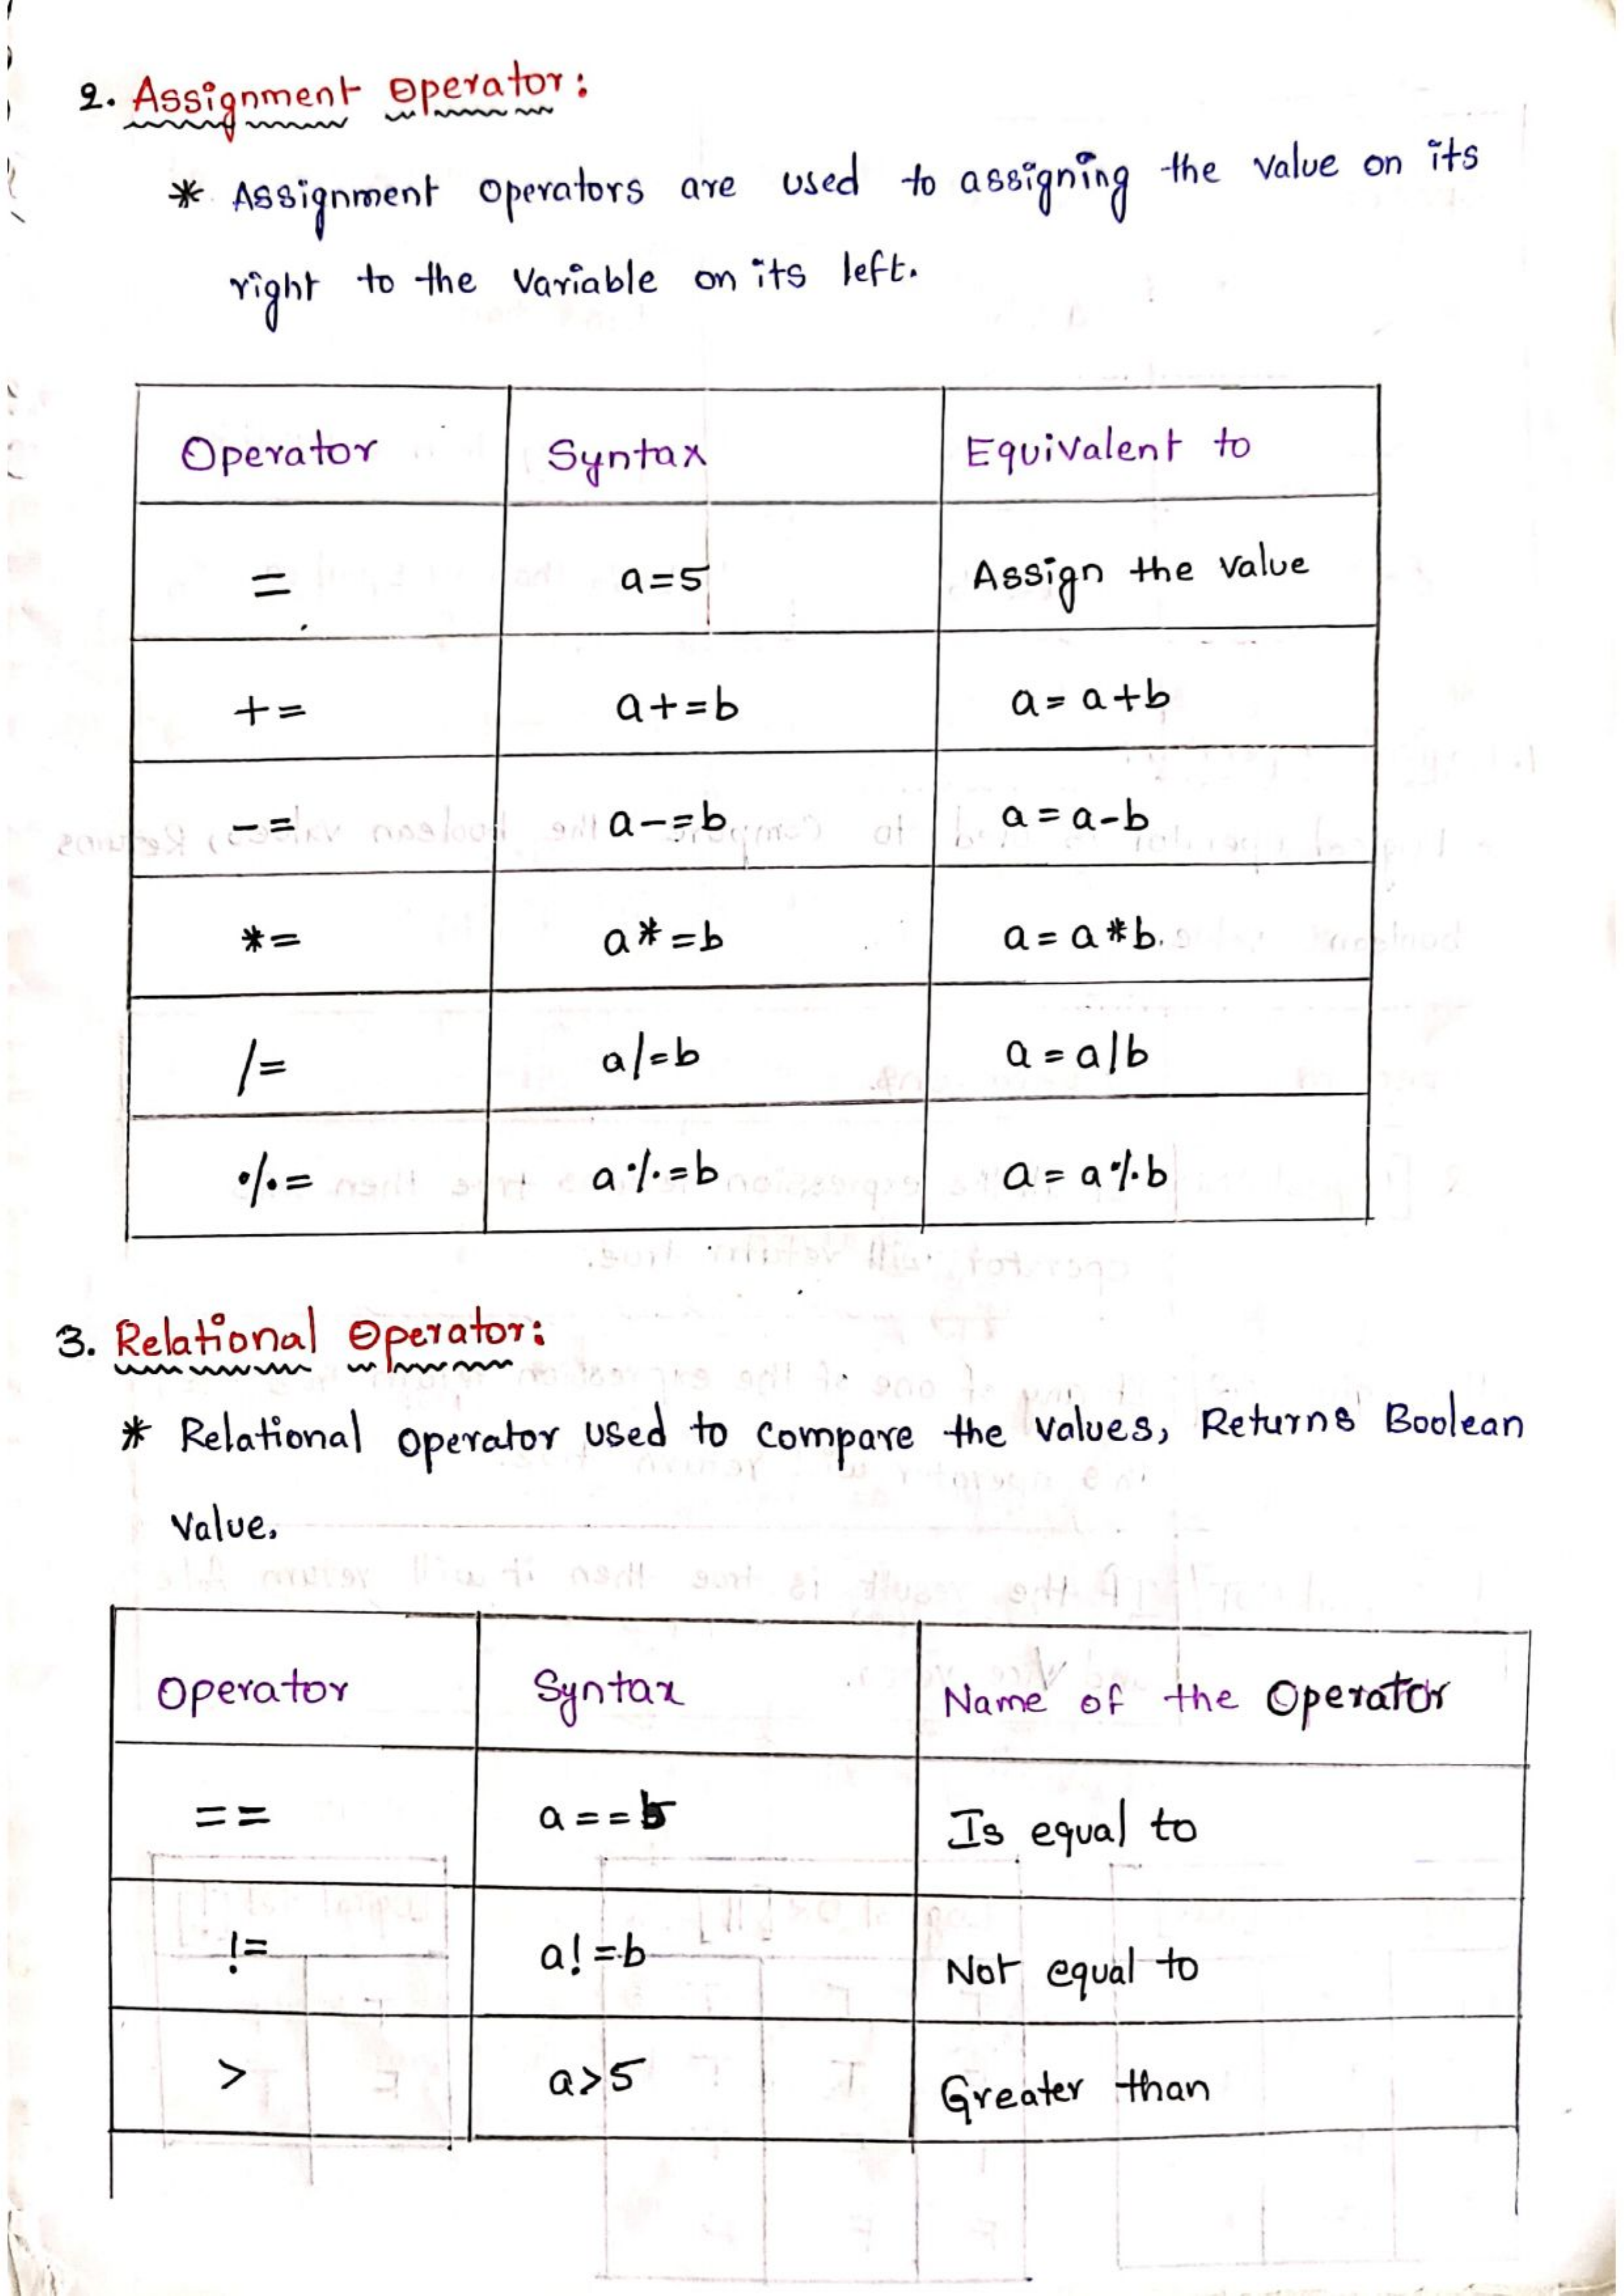 2. Assignment Operator:
* Assignment operators are used to assigning the value on its
right to the variable on its left.
Operator Syntax Equivalent to
= a=5 Assign the value
+= a+=b a=a+b
-= a-=b a=a-b
*= a*=b a=a*b.
/= a/=b a=a/b
%= a%=b a=a%b
3. Relational Operator:
* Relational operator used to compare the values, Returns Boolean
Value.
Operator Syntax Name of the Operator
== a== Is equal to
!= a!=b Not equal to
> a>5 Greater than